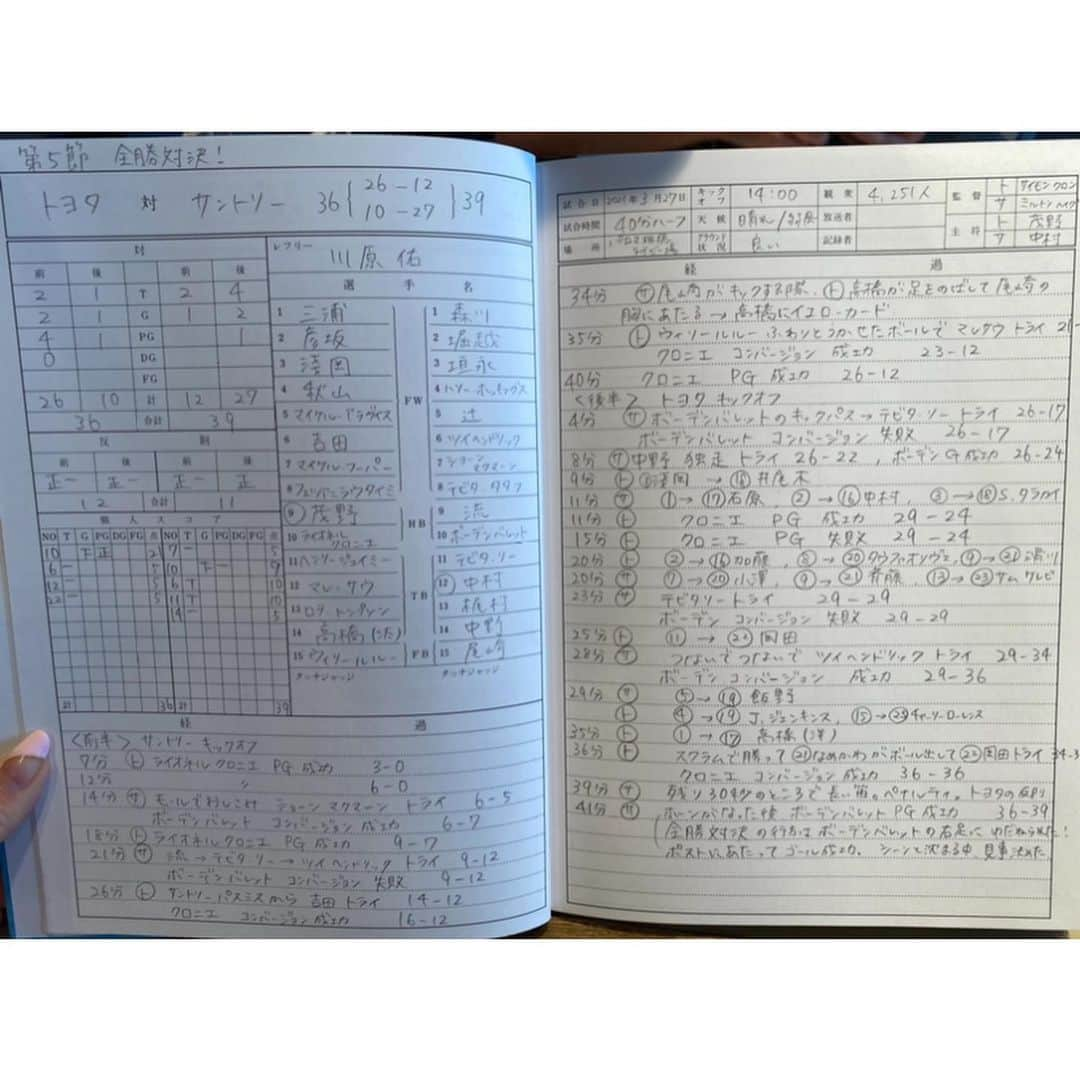 第5節 全勝対決!
トヨタ 対 サントリー 36{26-12 10-27}39
対
前 後 前 後
2 1 T 2 4
2 1 G 1 2
4 1 PG 1
0 DG
FG
26 10 計 12 27
36 合計 39
反 則
前 後 前 後
正一 正一 正一 正
12 合計 11
個人スコア
NO T G PG DG FG 点 NO T G PG DG FG 点
計 36 計 39
レフリー
川原 佑
選 手 名
1 三浦 1 森川
2 彦坂 2 堀越
3 淺岡 3 垣永
4 秋山 FW 4 ハリー・ホッキングス
5 マイケル・アラダイス 5 辻
6 吉田 6 ツイヘンドリック
7 マイケル・フーパー 7 ショーン マクマーン
8 フェツアニラウタイミ 8 テビタ タタフ
⑨ 茂野 HB 9 流
10 ライオネル クロニエ 10 ボーデンバレット
11 ヘンリージェイミー 11 テビタ・リー
12 マレ・サウ TB ⑫ 中村
13 ロブ・トンプソン 13 梶村
14 高橋(汰) 14 中野
15 ウィリールルー FB 15 尾崎
タッチジャッジ タッチジャッジ
経 過
<前半> サントリー キックオフ
7分 ㋣ ライオネル クロニエ PG 成功 3-0
12分 〃 6-0
14分 ㋚ モールでおしこみ ショーン マクマーン トライ 6-5
ボーデンバレット コンバージョン 成功 6-7
18分 ㋣ ライオネル クロニエ PG 成功 9-7
21分 ㋚ 流→テビタ リー→ツイヘンドリック トライ 9-12
ボーデンバレット コンバージョン 失敗 9-12
26分 ㋣ サントリーパスミスから 吉田 トライ 14-12
クロニエ コンバージョン 成功 16-12
試合日 2021年3月27日 キックオフ 14:00 観衆 4,251人 監督 ト サイモン クロン
サ ミルトン ヘイグ
試合時間 40分ハーフ 天候 晴れ 放送者 主将 ト 茂野
場所 グラウンド状況 良い 記録者 サ 中村
経 過
34分 ㋚ 尾崎がキックする際、㋣高橋が足をのばして尾崎の
胸にあたる→高橋にイエローカード
35分 ㋣ ウィリールルー ふわりとうかせたボールで マレサウ トライ 21-
クロニエ コンバージョン 成功 23-12
40分 クロニエ PG 成功 26-12
<後半> トヨタ キックオフ
4分 ㋚ ボーデンバレットのキックパス→テビタ・リー トライ 26-17
ボーデンバレット コンバージョン 失敗 26-17
8分 ㋚ 中野 独走 トライ 26-22, ボーデン G成功 26-24
9分 ㋣ ③淺岡→⑱井尾木
11分 ㋚ ①→⑰石原, ②→⑯中村, ③→⑱S.タラカイ
11分 ㋣ クロニエ PG 成功 29-24
15分 ㋣ クロニエ PG 失敗 29-24
20分 ㋣ ②→⑯加藤, ⑧→⑳タウファオソヴェ, ⑨→㉑滑川
20分 ㋚ ⑦→⑳小澤, ⑨→㉑齊藤, ⑬→㉓サム ケレビ
23分 ㋚ テビタリートライ 29-29
ボーデン コンバージョン 失敗 29-29
25分 ㋣ ⑪→㉒岡田
28分 ㋚ つないでつないで ツイヘンドリック トライ 29-34
ボーデン コンバージョン 成功 29-36
29分 ㋚ ⑤→⑲飯野
㋣ ④→⑲J.ジェンキンス, ⑮→㉓チャーリーローレンス
35分 ㋣ ①→⑰ 高橋(洋)
36分 ㋣ スクラムで勝って㉑なめかわがボール出して㉒岡田トライ 34-3
クロニエ コンバージョン 成功 36-36
39分 ㋚ 残り30秒のところで長い笛。ペナルティ。トヨタの反則
41分 ㋚ ホーンがなった後 ボーデンバレット PG成功 36-39
(全勝対決の行方はボーデンバレットの右足に ゆだねられた!
ポストにあたってゴール成功。シーンと沈まる中、見事決めた